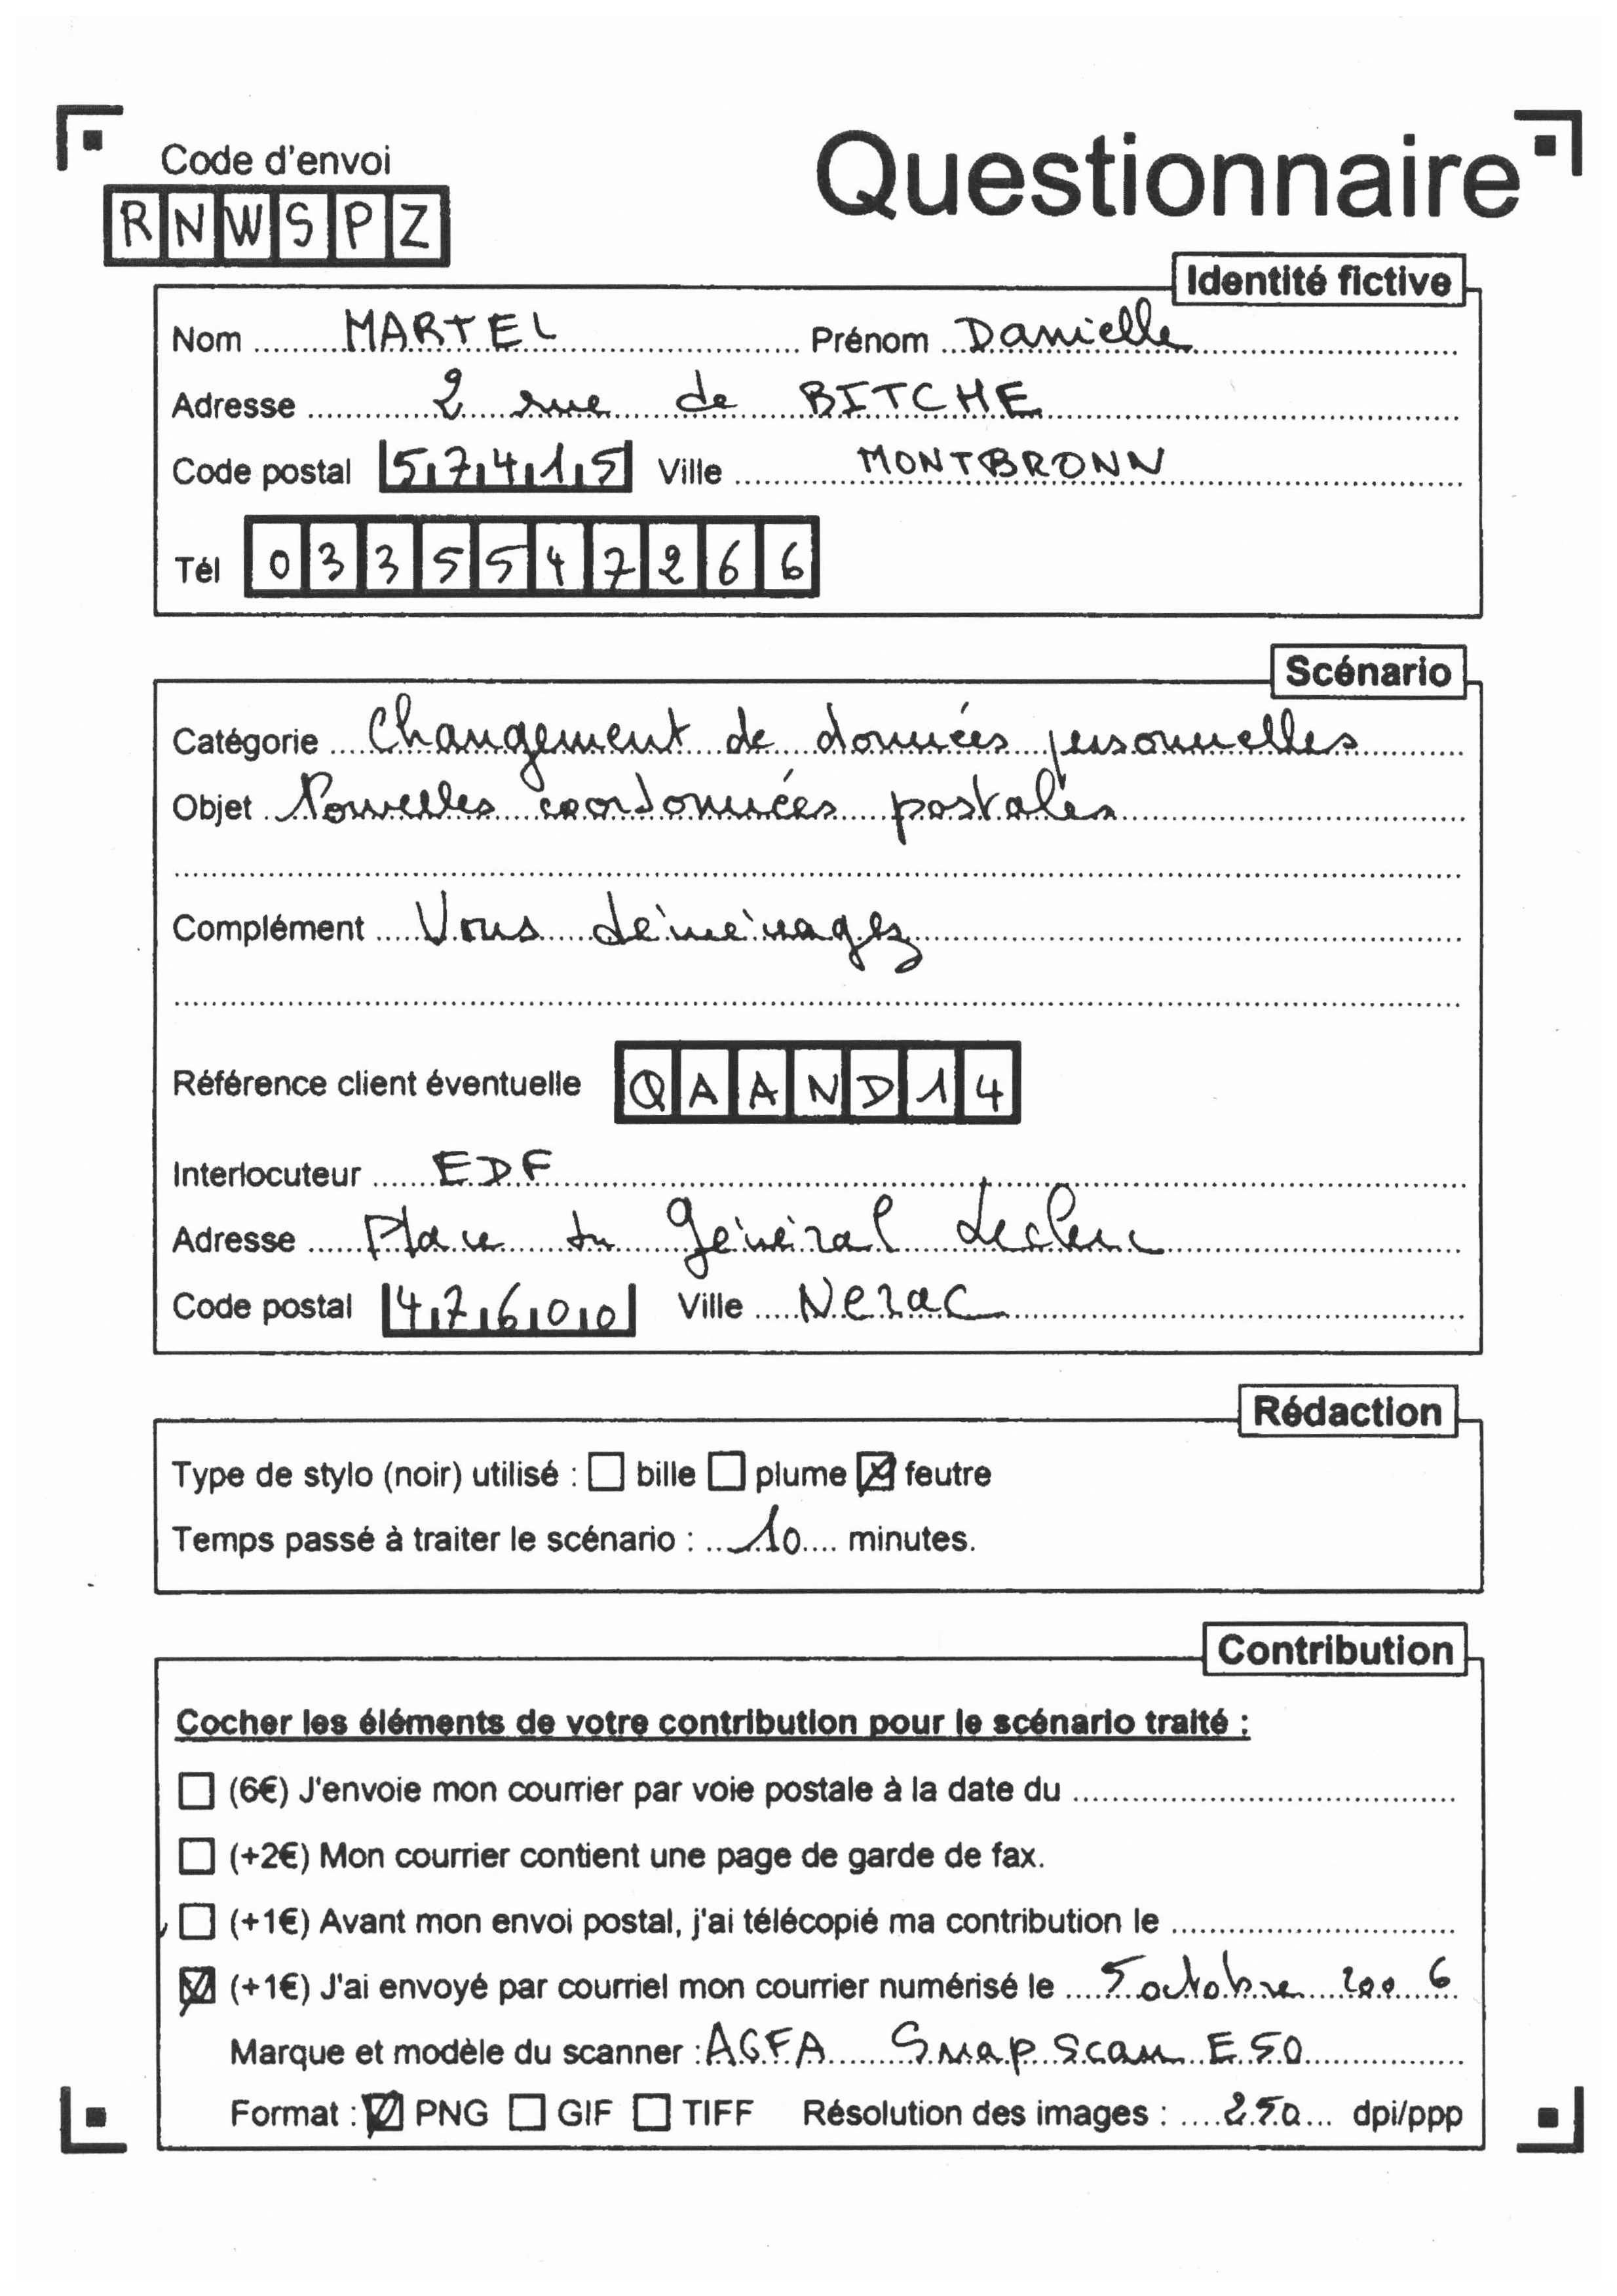 Code d'envoi
RNWSPZ
Questionnaire
Identité fictive
Nom MARTEL Prénom Danielle
Adresse 2 rue de BITCHE
Code postal 57415 Ville MONTBRONN
Tél 0335547266
Scénario
Catégorie Changement de données personnelles
Objet Nouvelles coordonnées postales
Complément Vous déménagez
Référence client éventuelle QAAND14
Interlocuteur EDF
Adresse Place du Général Leclerc
Code postal 47600 Ville Nerac
Rédaction
Type de stylo (noir) utilisé : bille plume feutre
Temps passé à traiter le scénario : 10 minutes.
Contribution
Cocher les éléments de votre contribution pour le scénario traité :
(6€) J'envoie mon courrier par voie postale à la date du
(+2€) Mon courrier contient une page de garde de fax.
(+1€) Avant mon envoi postal, j'ai télécopié ma contribution le
(+1€) J'ai envoyé par courriel mon courrier numérisé le 5 octobre 2006
Marque et modèle du scanner : AGFA Snap Scan E50
Format : PNG GIF TIFF Résolution des images : 250 dpi/ppp